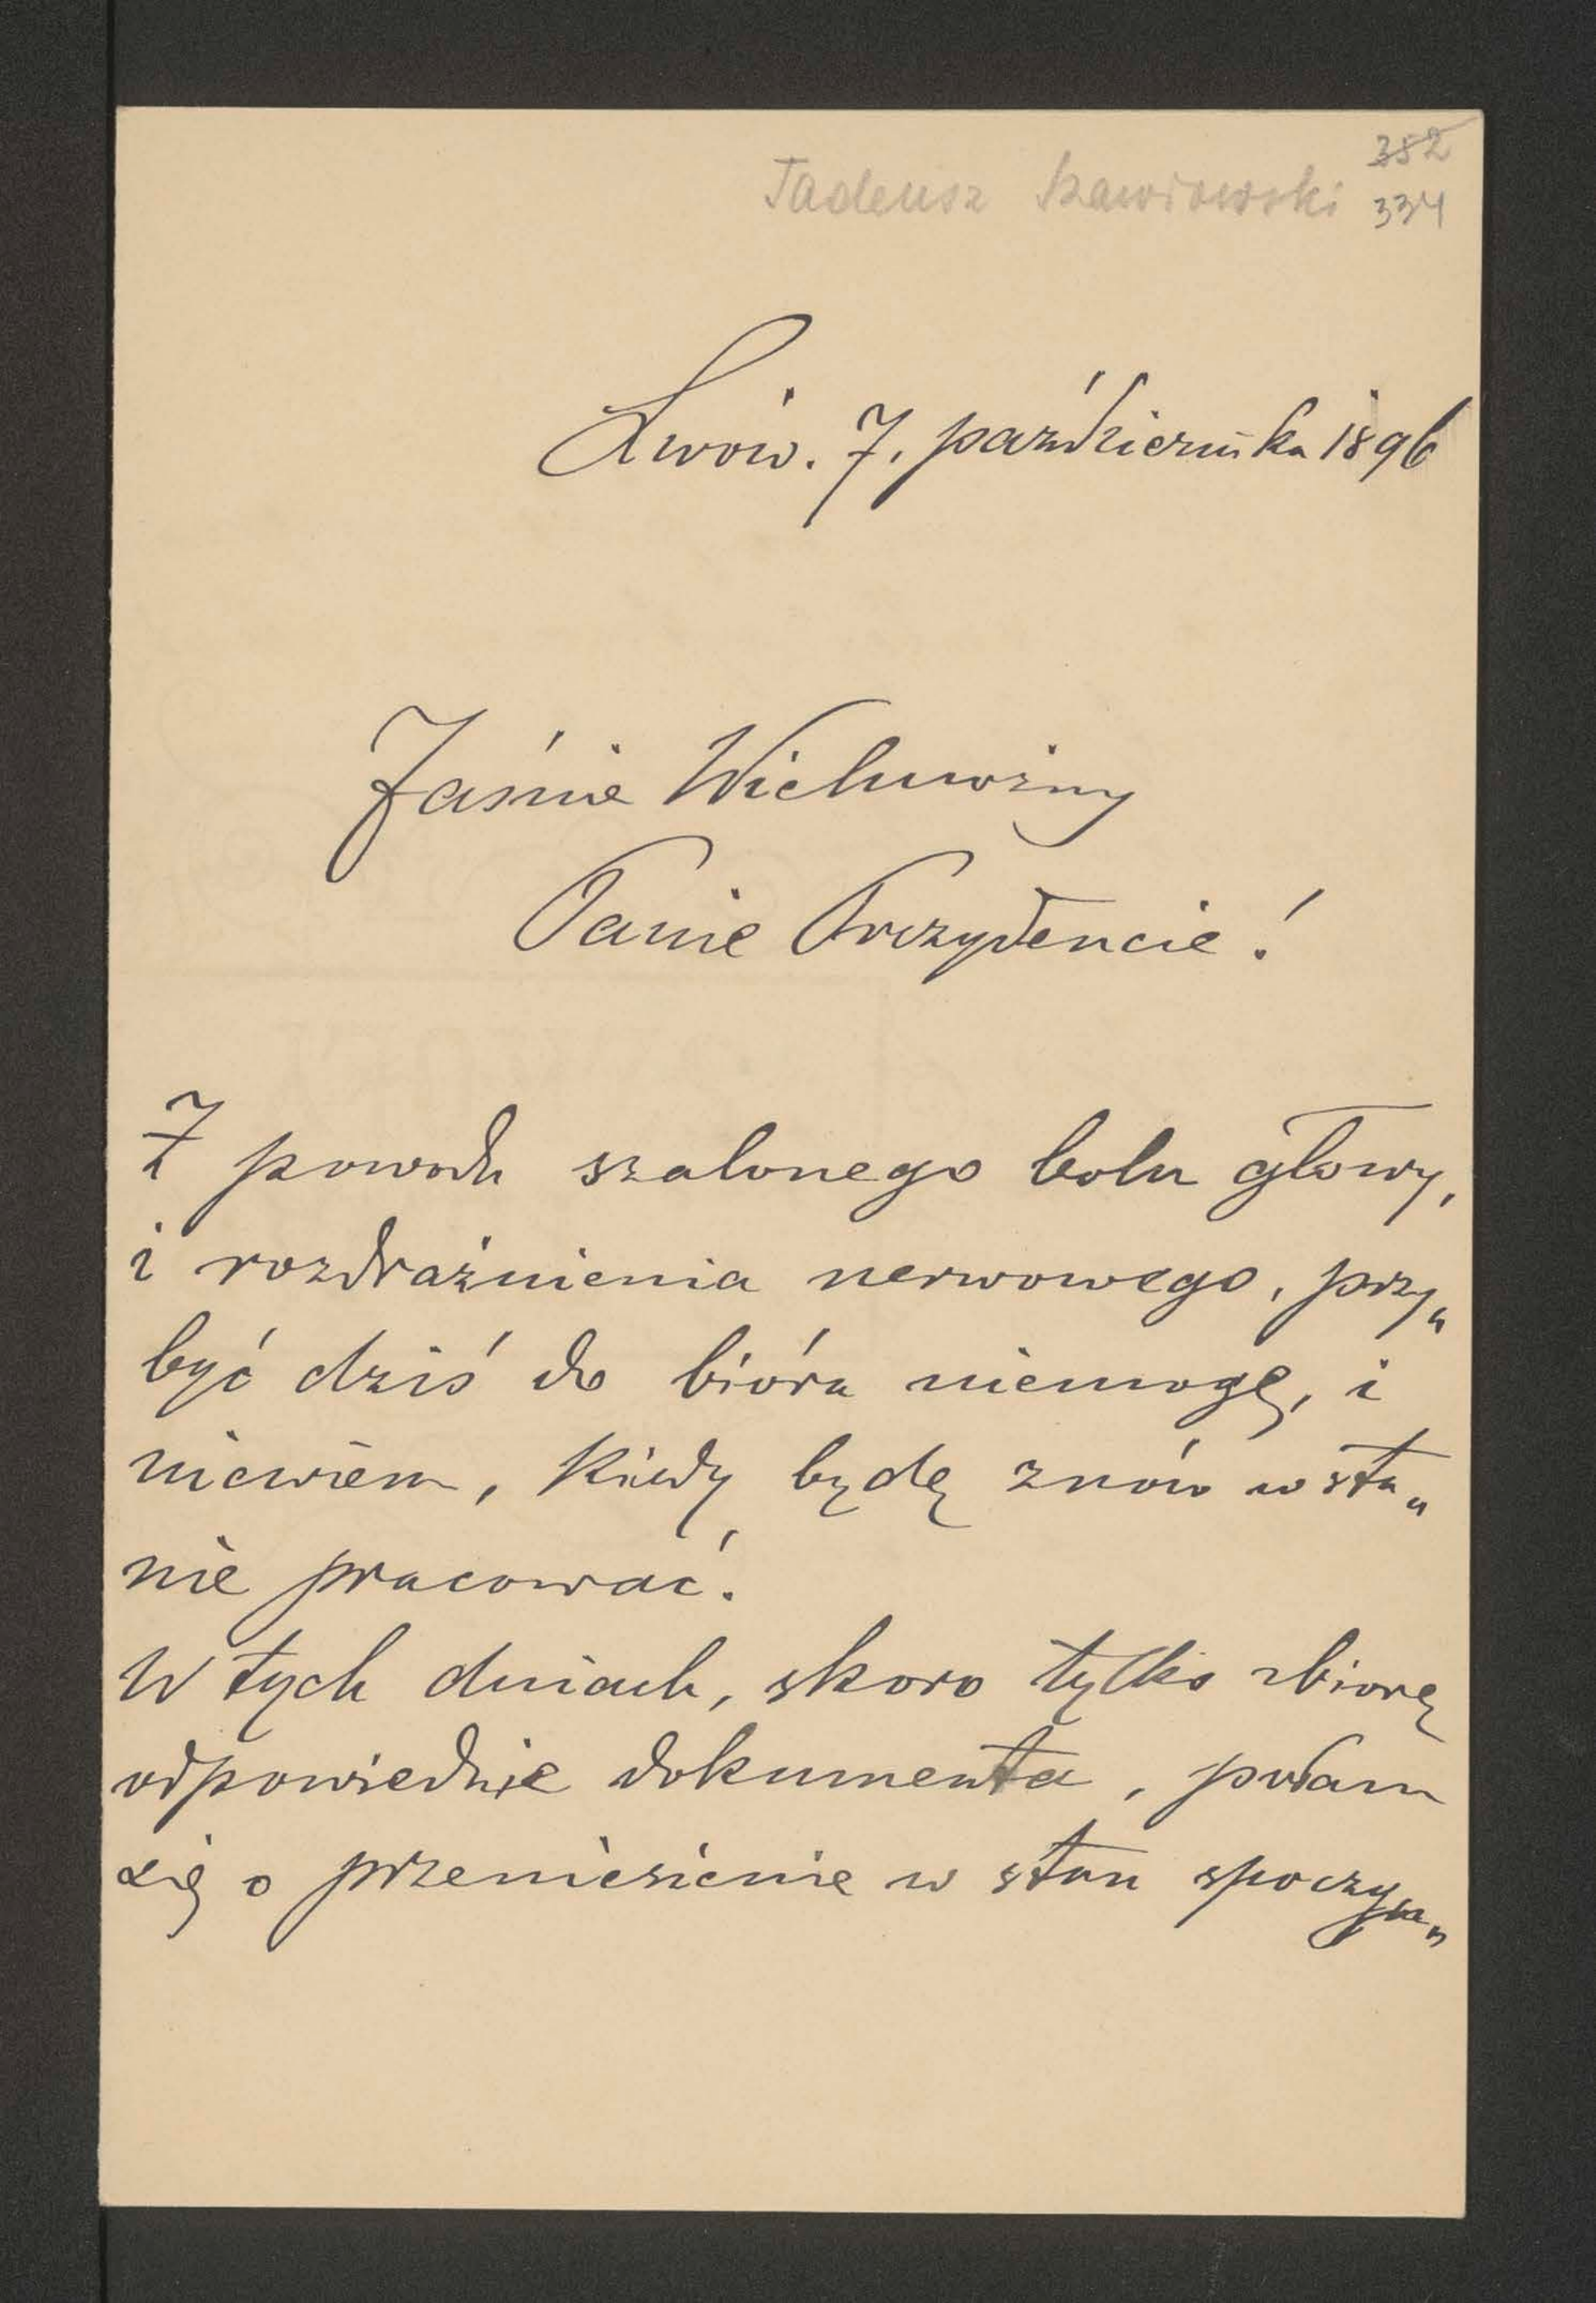 352
Tadeusz Skawiowski 334
Lwów. 7. października 1896
Jaśnie Wielmożny
Panie Prezydencie!
Z powodu szalonego bolu głowy,
i rozdrażnienia nerwowego, przy„
być dziś do bióra niemogę, i
niewiem, kiedy będę znów w sta„
nie pracować.
W tych dniach, skoro tylko zbiorę
odpowiednie dokumenta, podam
się o przeniesienie w stan spoczyn„